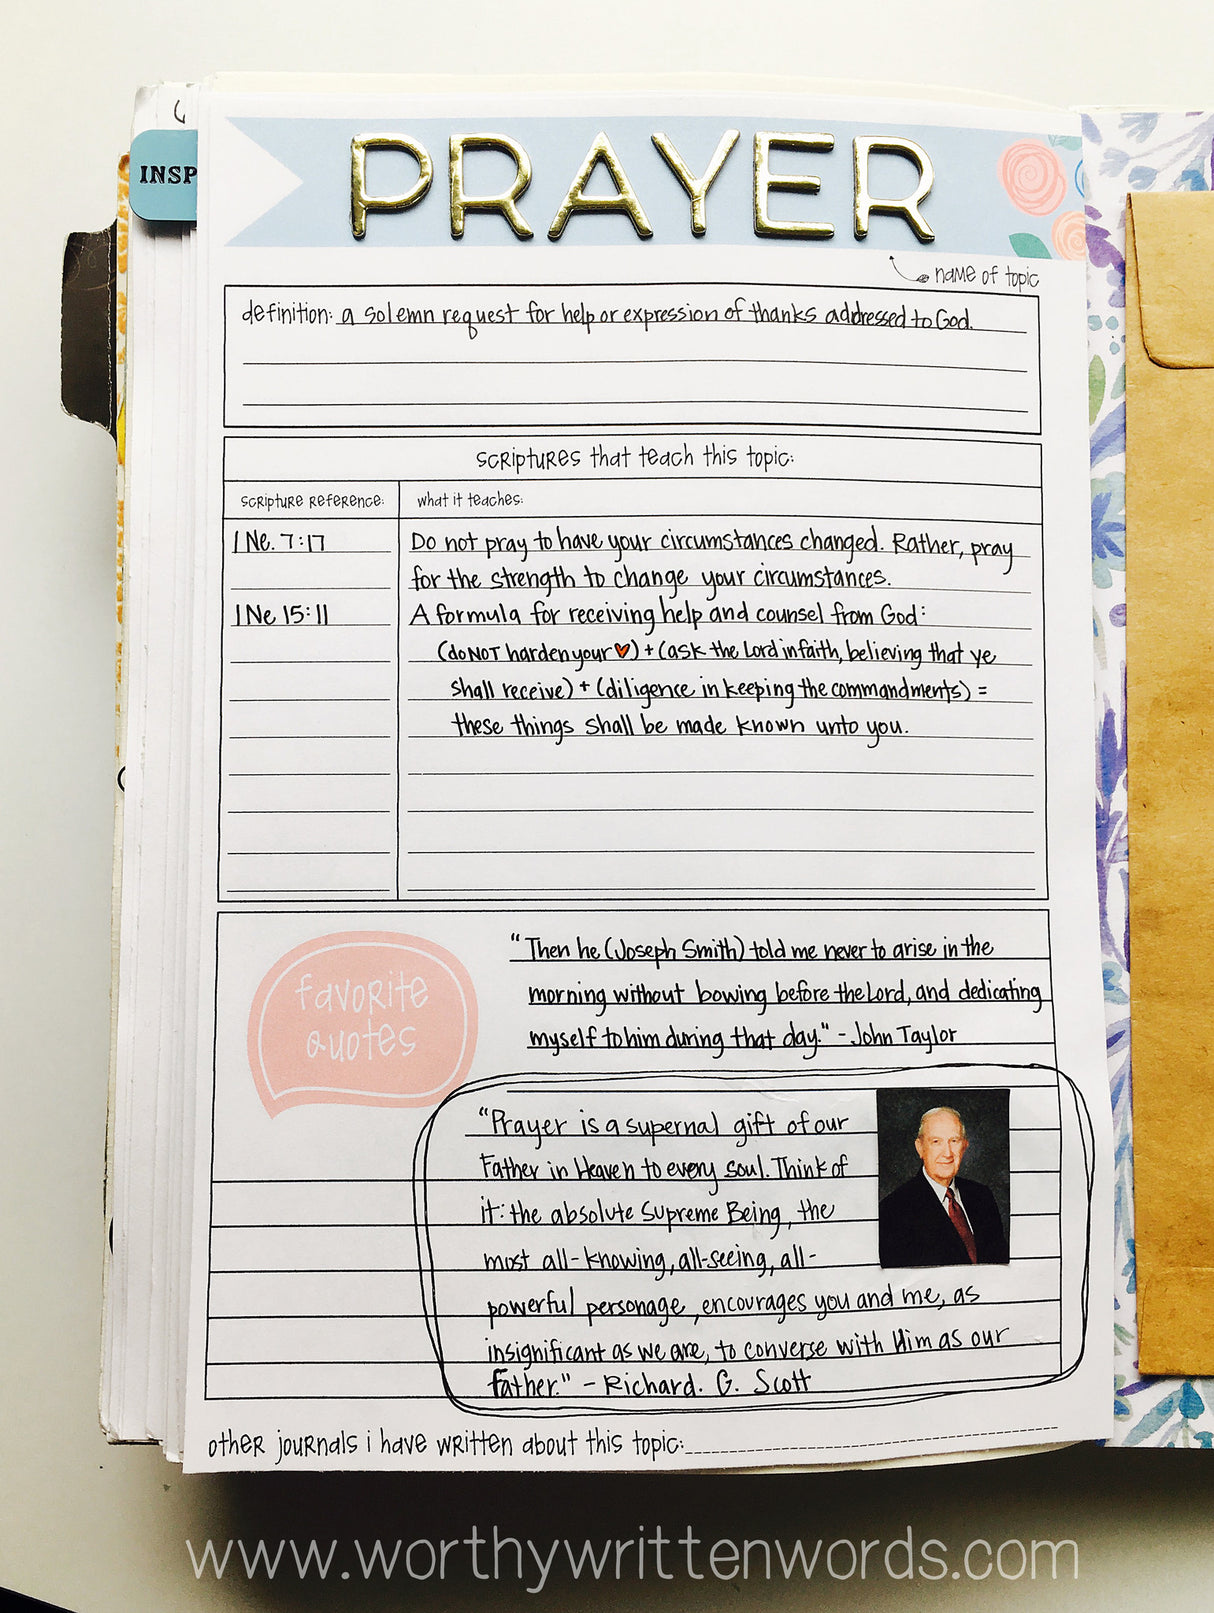 INSP
PRAYER
name of topic
definition: a solemn request for help or expression of thanks addressed to God.
scriptures that teach this topic:
scripture reference:
what it teaches:
1 Ne. 7:17
Do not pray to have your circumstances changed. Rather, pray
for the strength to change your circumstances.
1 Ne 15:11
A formula for receiving help and counsel from God:
(do NOT harden your ♥) + (ask the Lord in faith, believing that ye
shall receive) + (diligence in keeping the commandments) =
these things shall be made known unto you.
favorite
quotes
"Then he (Joseph Smith) told me never to arise in the
morning without bowing before the Lord, and dedicating
myself to him during that day." - John Taylor
"Prayer is a supernal gift of our
Father in Heaven to every soul. Think of
it: the absolute Supreme Being, the
most all-knowing, all-seeing, all-
powerful personage, encourages you and me, as
insignificant as we are, to converse with Him as our
Father." - Richard. G. Scott
other journals i have written about this topic:
www.worthywrittenwords.com